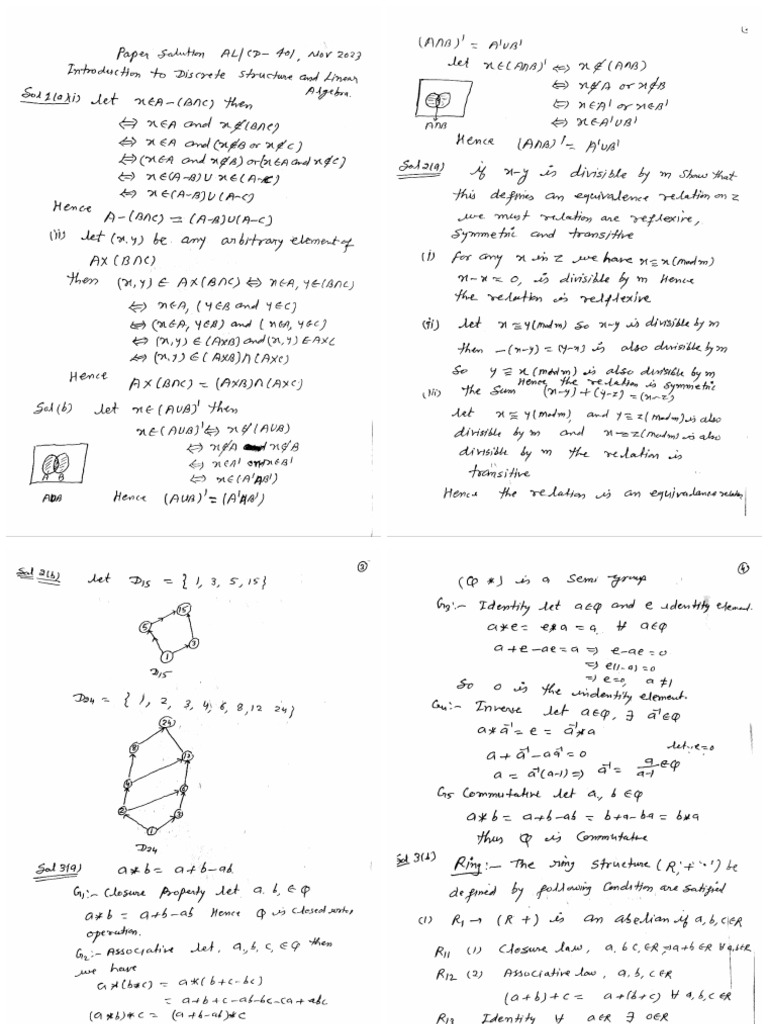 Paper Solution AL/CD-401, Nov 2023
Introduction to Discrete Structure and Linear
Algebra.
Sol 1(a)(i) let x∈A-(B∩C) then
⇔ x∈A and x∉(B∩C)
⇔ x∈A and (x∉B or x∉C)
⇔ (x∈A and x∉B) or (x∈A and x∉C)
⇔ x∈(A-B) U x∈(A-C)
⇔ x∈(A-B)U(A-C)
Hence
A-(B∩C) = (A-B)U(A-C)
(ii) let (x,y) be any arbitrary element of
AX(B∩C)
then (x,y) ∈ AX(B∩C) ⇔ x∈A, y∈(B∩C)
⇔ x∈A, (y∈B and y∈C)
⇔ (x∈A, y∈B) and (x∈A, y∈C)
⇔ (x,y) ∈ (AXB) and (x,y) ∈ AXC
⇔ (x,y) ∈ (AXB)∩(AXC)
Hence
AX(B∩C) = (AXB)∩(AXC)
Sol(b) let x∈(AUB)' then
x∈(AUB)' ⇔ x∉(AUB)
⇔ x∉A and x∉B
⇔ x∈A' x∈B'
⇔ x∈(A'∩B')
A B
AUB
Hence (AUB)' = (A'∩B')
(A∩B)' = A'UB'
let x∈(A∩B)' ⇔ x∉(A∩B)
⇔ x∉A or x∉B
⇔ x∈A' or x∈B'
⇔ x∈A'UB'
A∩B
Hence (A∩B)' = A'UB'
Sol 2(a) if x-y is divisible by m show that
this defines an equivalence relation on z
we must relation are reflexive,
symmetric and transitive
(i) for any x in z we have x≡x(modm)
x-x=0, is divisible by m Hence
the relation is relflexive
(ii) let x≡y(modm) so x-y is divisible by m
then -(x-y)=(y-x) is also divisible by m
So y≡x(modm) is also divisible by m
Hence the relation is symmetric
(iii) the sum (x-y)+(y-z)=(x-z)
let x≡y(modm), and y≡z(modm) is also
divisible by m and x-z(modm) is also
divisible by m the relation is
transitive
Hence the relation is an equivalence relation
Sol 2(b) let D15 = {1, 3, 5, 15}
3
15
5
3
1
D15
D24 = {1, 2, 3, 4, 6, 8, 12 24}
24
8
12
4
6
2
3
1
D24
Sol 3(a) a*b = a+b-ab
G1:- Closure Property let a, b, ∈ Q
a*b = a+b-ab Hence Q is closed
operation.
G2:- Associative let, a, b, c, ∈ Q then
we have
a*(b*c) = a*(b+c-bc)
= a+b+c-ab-bc-ca+abc
(a*b)*c = (a+b-ab)*c
4
(Q *) is a semi group
G3:- Identity let a∈Q and e identity element.
a*e = e*a = a ∀ a∈Q
a+e-ae=a ⇒ e-ae=0
⇒ e(1-a)=0
⇒ e=0, a≠1
So 0 is the inidentity element.
G4:- Inverse let a∈Q, ∃ a⁻¹∈Q
a*a⁻¹ = e = a⁻¹*a
let e=0
a+a⁻¹-aa⁻¹=0
a = a⁻¹(a-1) ⇒ a⁻¹ = a/a-1 ∈Q
G5 Commutative let a, b ∈ Q
a*b = a+b-ab = b+a-ba = b*a
thus Q is Commutative
Sol 3(b) Ring:- The ring structure (R,+ '·') be
defined by following Condition are satisfied
(1) R1 → (R +) is an abelian if a, b, c∈R
R11 (1) Closure law, a, b c, ∈R ⇒ a+b∈R ∀ a,b∈R
R12 (2) Associative law, a, b, c∈R
(a+b)+c = a+(b+c) ∀ a,b,c∈R
R13 Identity ∀ a∈R ∃ 0∈R